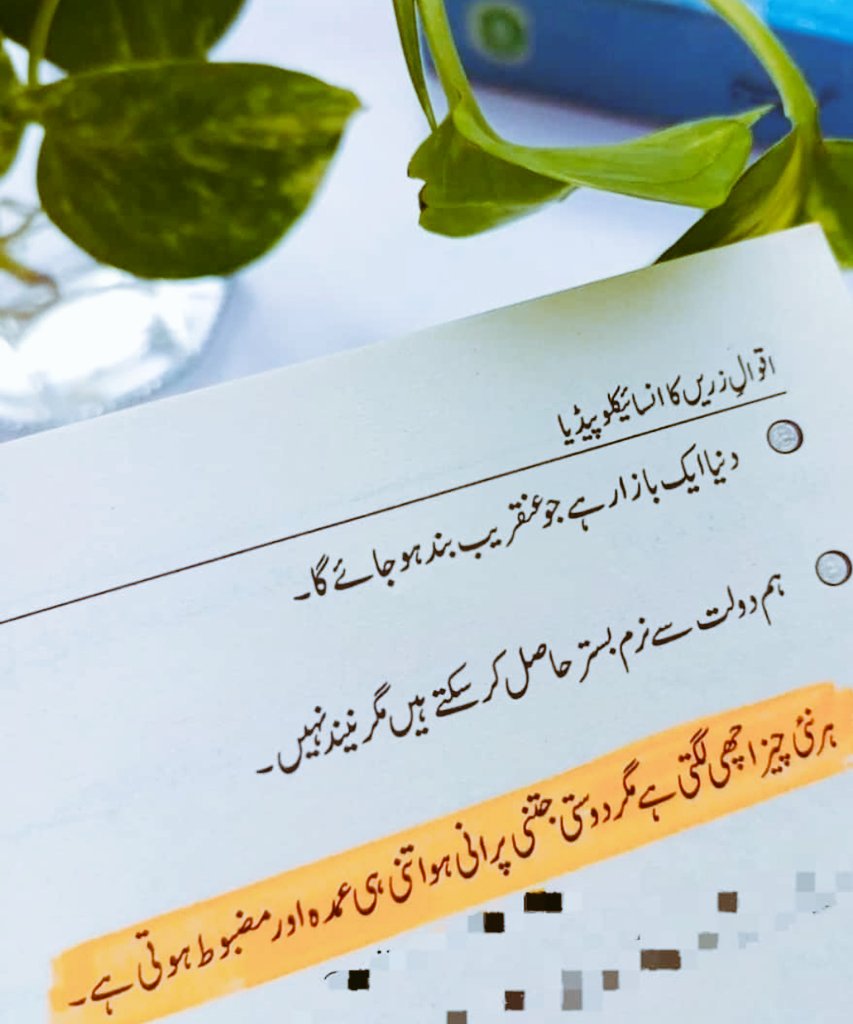 اقوالِ زریں کا انسائیکلو پیڈیا
دنیا ایک بازار ہے جو عنقریب بند ہو جائے گا۔
ہم دولت سے نرم بستر حاصل کر سکتے ہیں مگر نیند نہیں۔
ہر نئی چیز اچھی لگتی ہے مگر دوستی جتنی پرانی ہو اتنی ہی عمدہ اور مضبوط ہوتی ہے۔